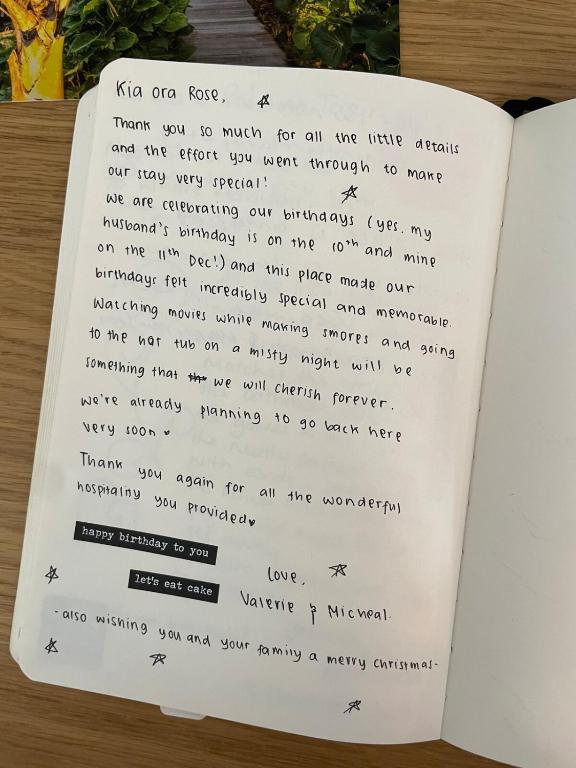 Kia ora Rose,
Thank you so much for all the little details
and the effort you went through to make
our stay very special!
We are celebrating our birthdays (yes, my
husband's birthday is on the 10th and mine
on the 11th Dec!) and this place made our
birthdays felt incredibly special and memorable.
Watching movies while making smores and going
to the hot tub on a misty night will be
something that we will cherish forever.
We're already planning to go back here
very soon ♥
Thank you again for all the wonderful
hospitality you provided♥
happy birthday to you
let's eat cake
Love,
Valerie & Micheal.
-also wishing you and your family a merry christmas-